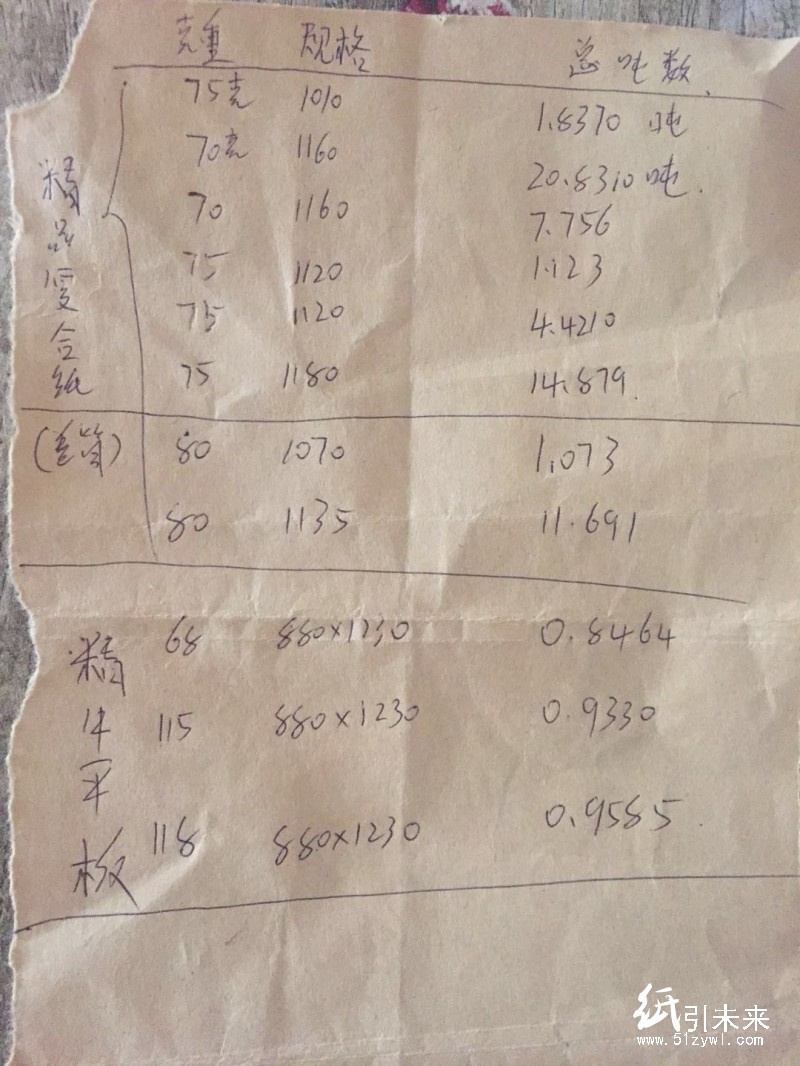 克重 规格 总吨数
75克 1010 1.8370 吨
70克 1160 20.8310 吨.
70 1160 7.756
75 1120 1.123
75 1120 4.4210
75 1180 14.879.
精品复合纸
80 1070 1.073
80 1135 11.691
68 880×1230 0.8464
115 880×1230 0.9330
118 880×1230 0.9585.
精牛平板
纸引未来
www.51zywl.com